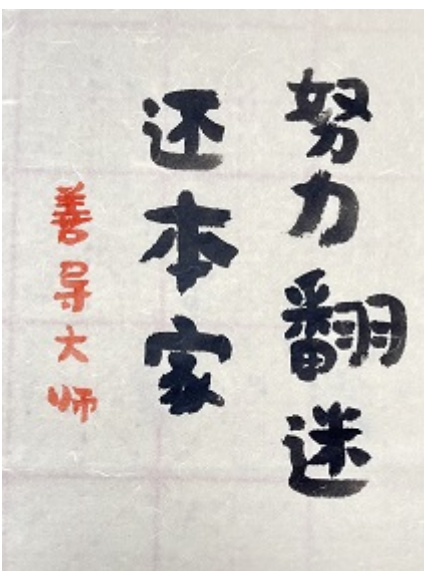 努力翻迷
还本家
善导大师